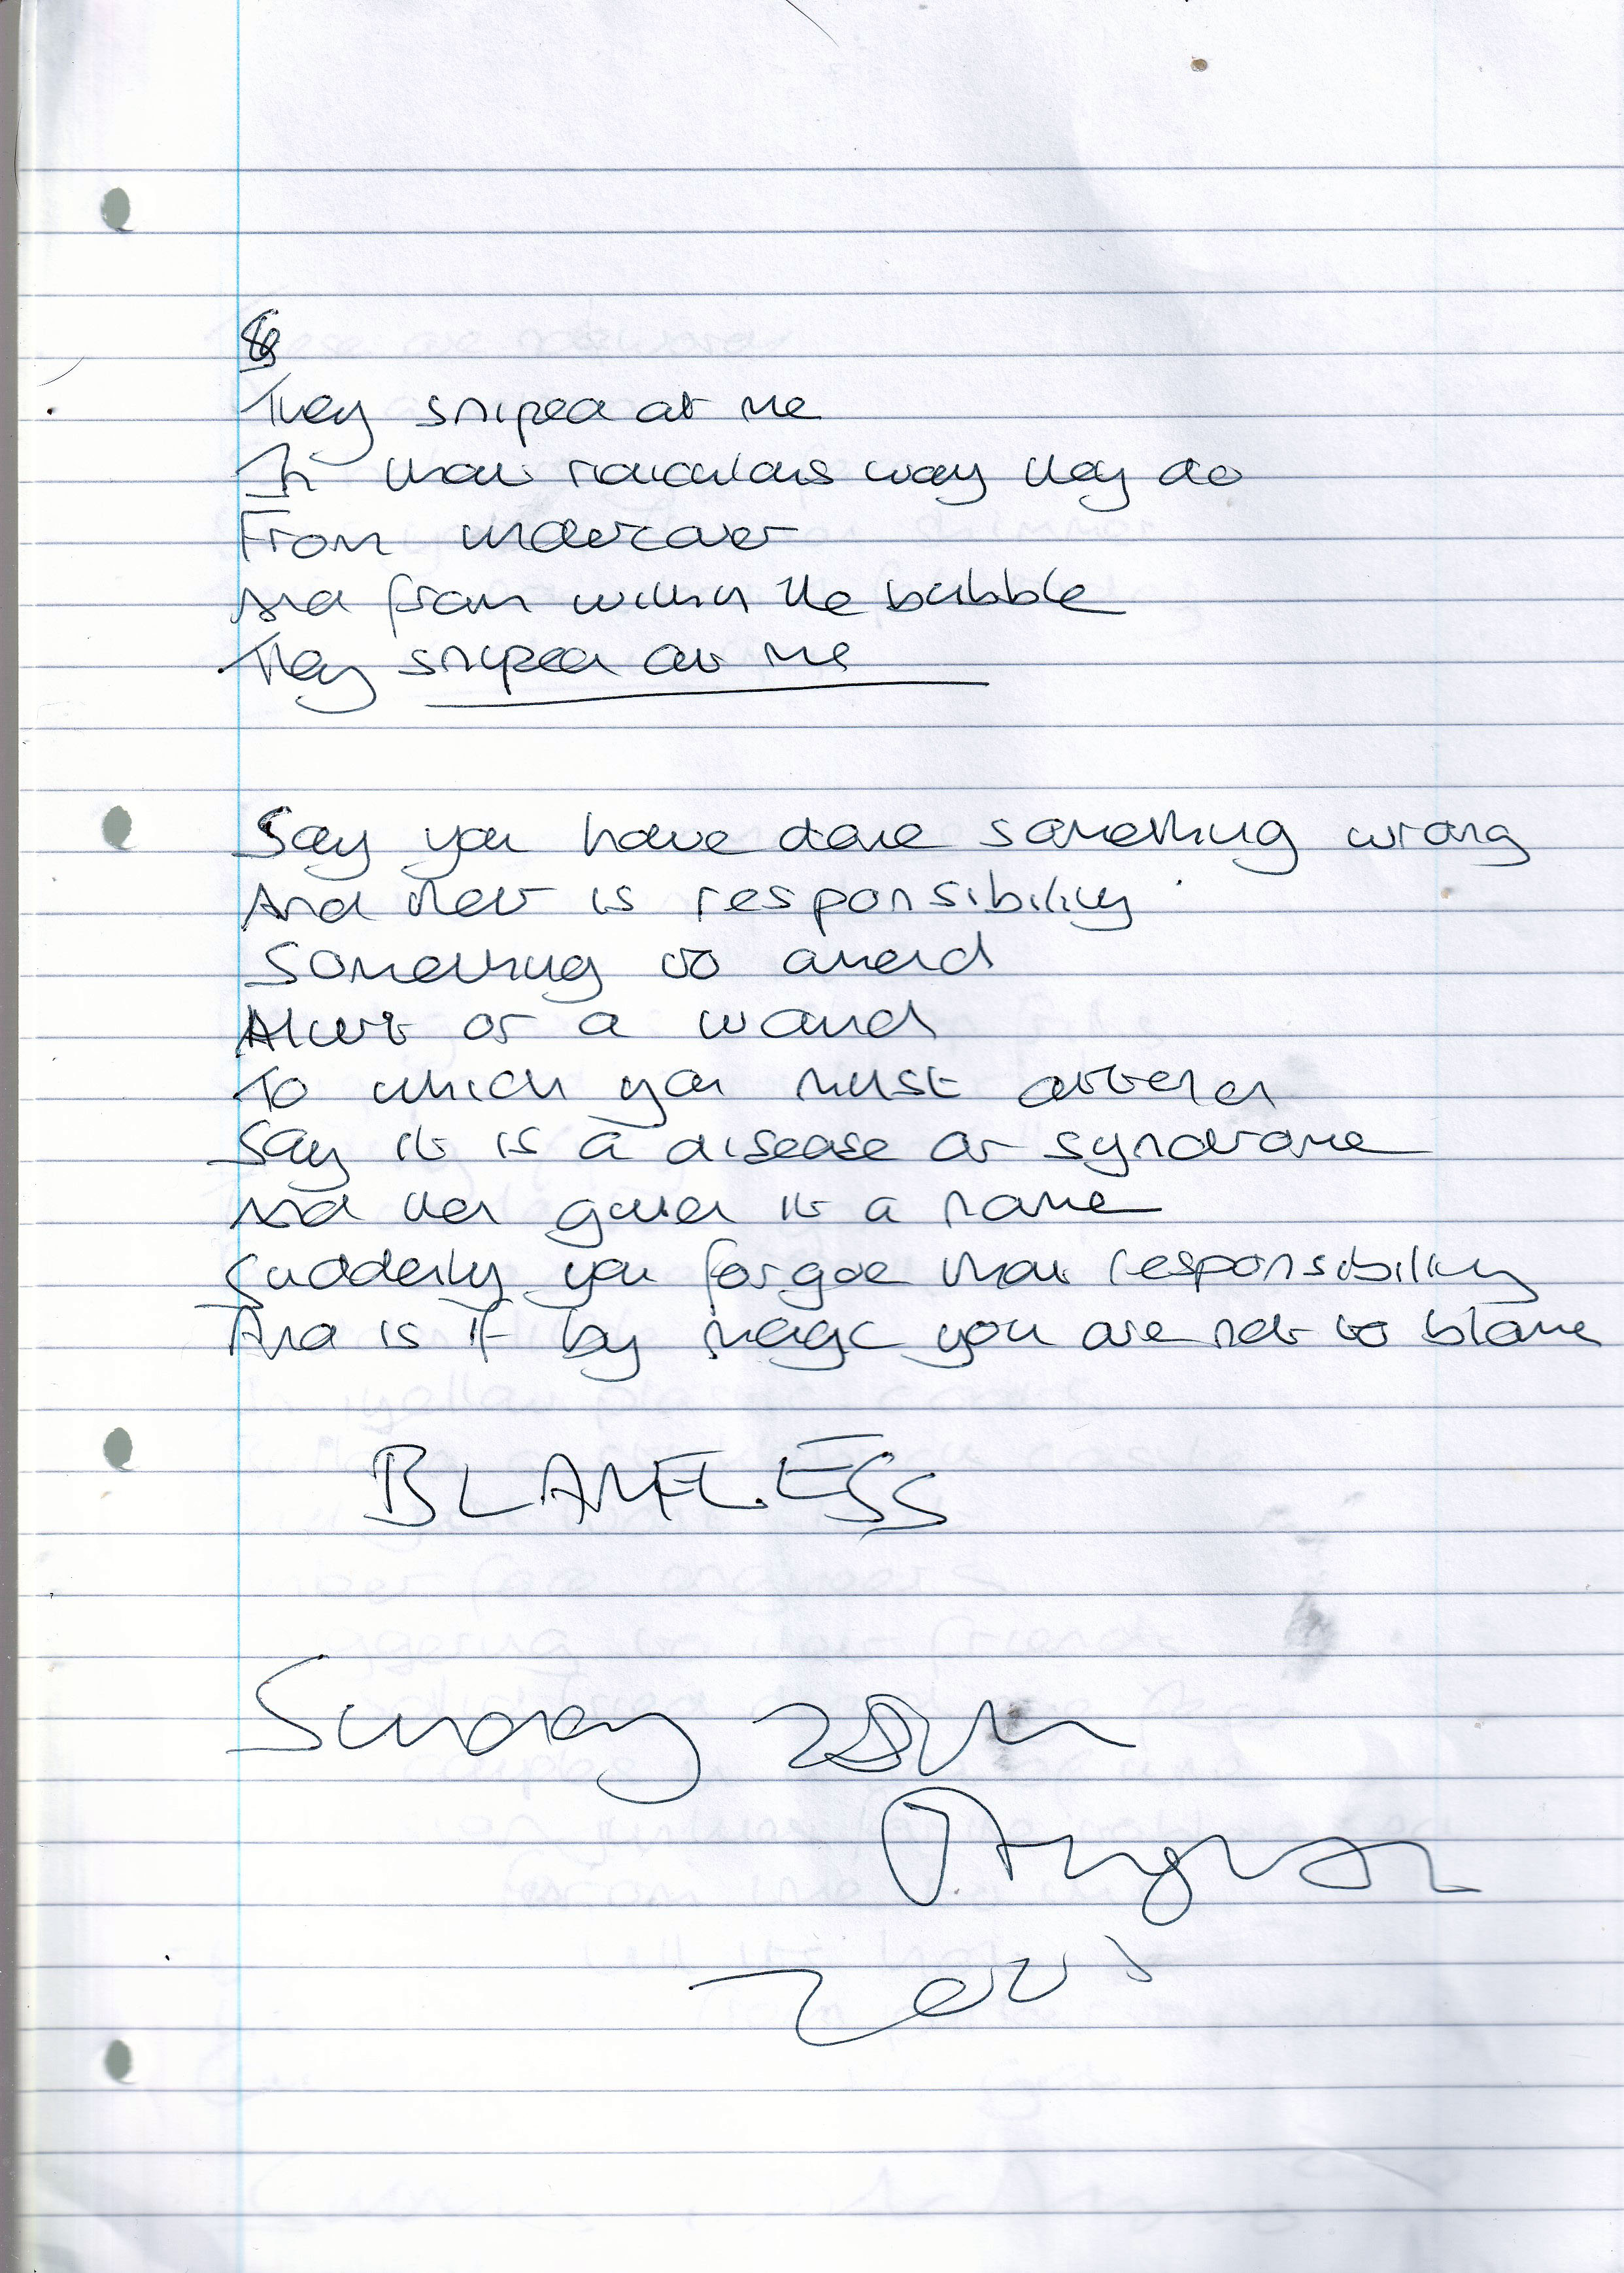 They sniped at me
In that ridiculous way they do
From undercover
And from within the bubble
They sniped at me
Say you have done something wrong
And that is responsibility
Something to amend
or a wand
To which you must attend
Say it is a disease or syndrome
And then given it a name
Suddenly you forgoe that responsibility
And is if by magic you are not to blame
BLAMELESS
Sunday 28th